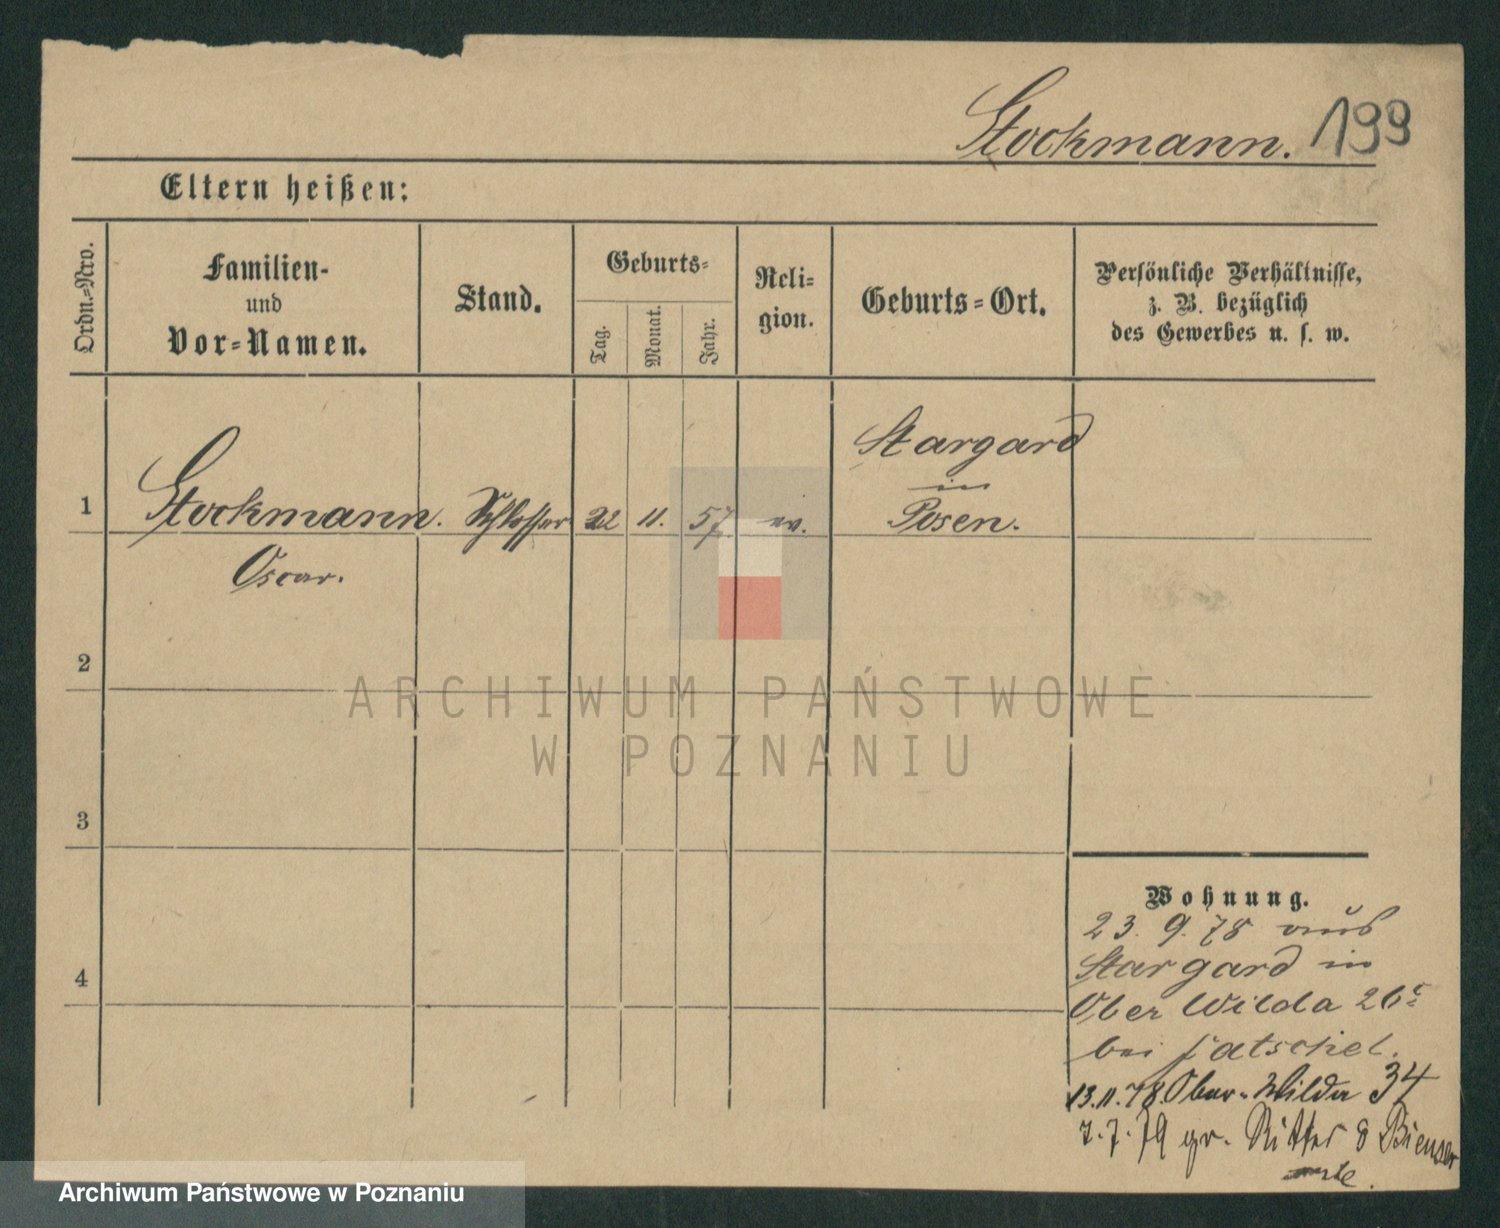 Stockmann. 199
Eltern heißen:
Ordn.-Nro.
Familien-
und
Vor-Namen.
Stand.
Geburts-
Tag.
Monat.
Jahr.
Reli-
gion.
Geburts-Ort.
Persönliche Verhältnisse,
z. B. bezüglich
des Gewerbes u. s. w.
Stargard
in
1 Stockmann. Schlosser 22 11. 57 ev. Posen.
Oscar.
2
ARCHIWUM PAŃSTWOWE
W POZNANIU
3
Wohnung.
23. 9. 78 aus
4
Stargard in
Ober Wilda 26
bei
13.11.78. Ober-Wilda 34
7.7.79 gr. Ritter 8
Archiwum Państwowe w Poznaniu